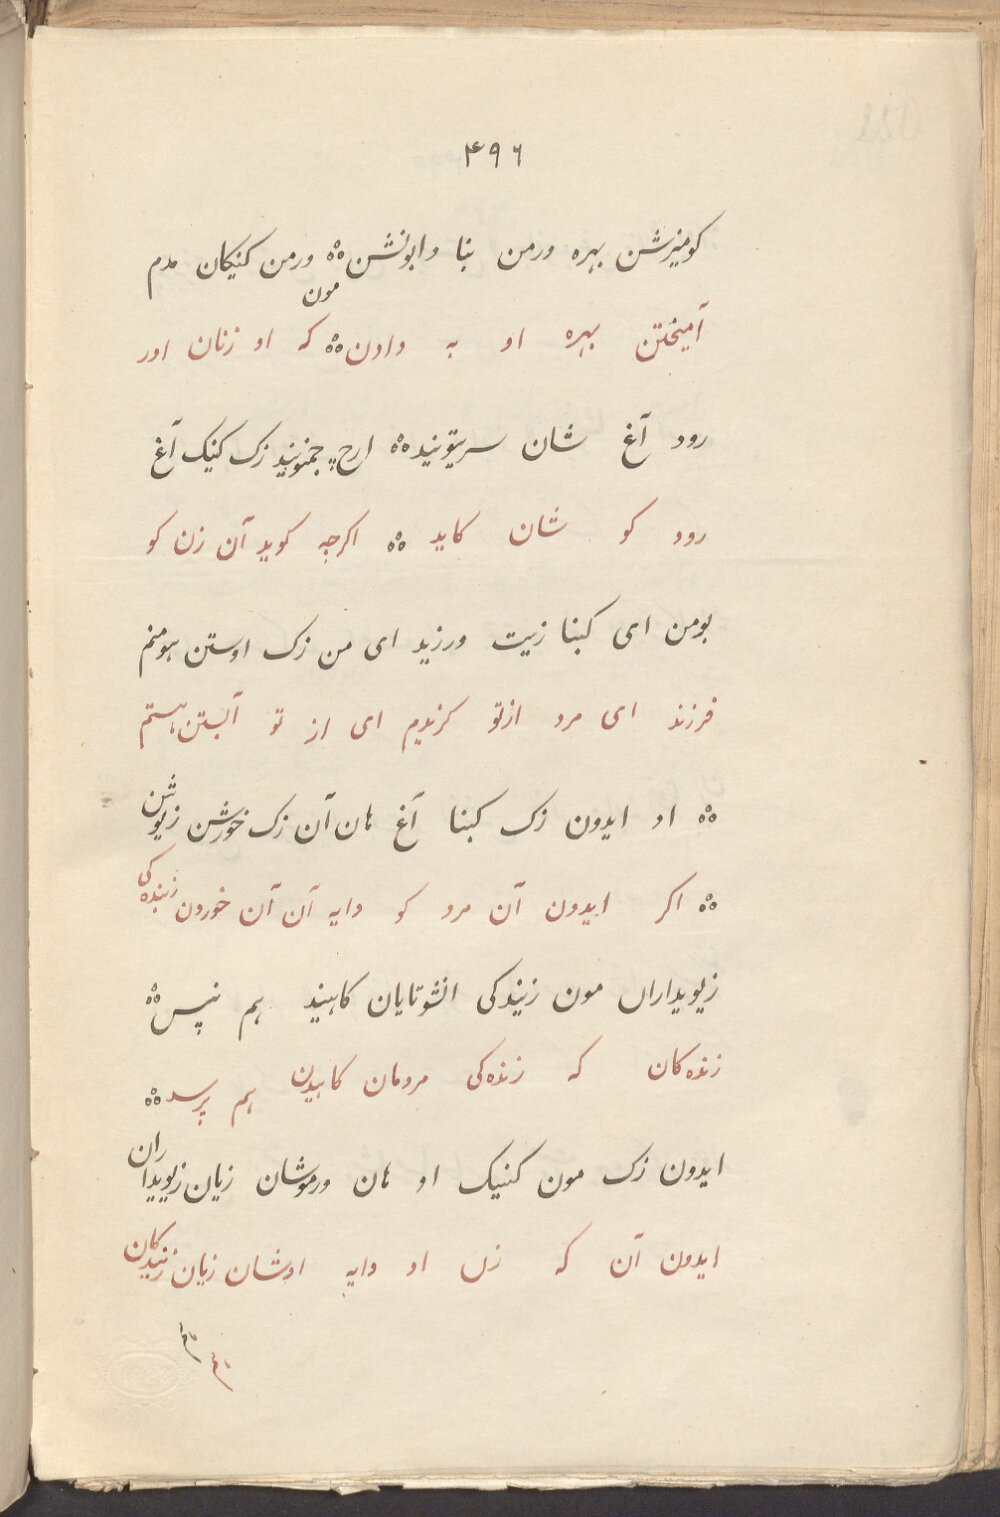 ۴۹۶
کومیزشن بهره ورمن بنا دابونشن ؞ ورمن کنیکان مدم
مون
آمیختن بهره او به دادن ؞ که او زنان اور
رود آغ شان سریتونید ؞ ارچ جمنونید زک کنیک آغ
رود کو شان کاید ؞ اکرچه کوید آن زن کو
بومن ای کبنا زیت ورزید ای من زک اوستن هومنم
فرزند ای مرد ازتو کرندیم ای از تو آبستن هستم
؞ او ایدون زک کبنا آغ هان آن زک خورشن زیوشن
؞ اکر ایدون آن مرد کو دایه آن آن خوردن زینده‌کی
زیویداران مون زیندکی انشوتایان کاهیند هم نپس ؞
زنده‌کان که زنده‌کی مردمان کاهیدن هم پرسد ؞
ایدون زک مون کنیک او هان ورموشان زیان زیویداران
ایدون آن که زن او دایه اوشان زیان زنیدکان